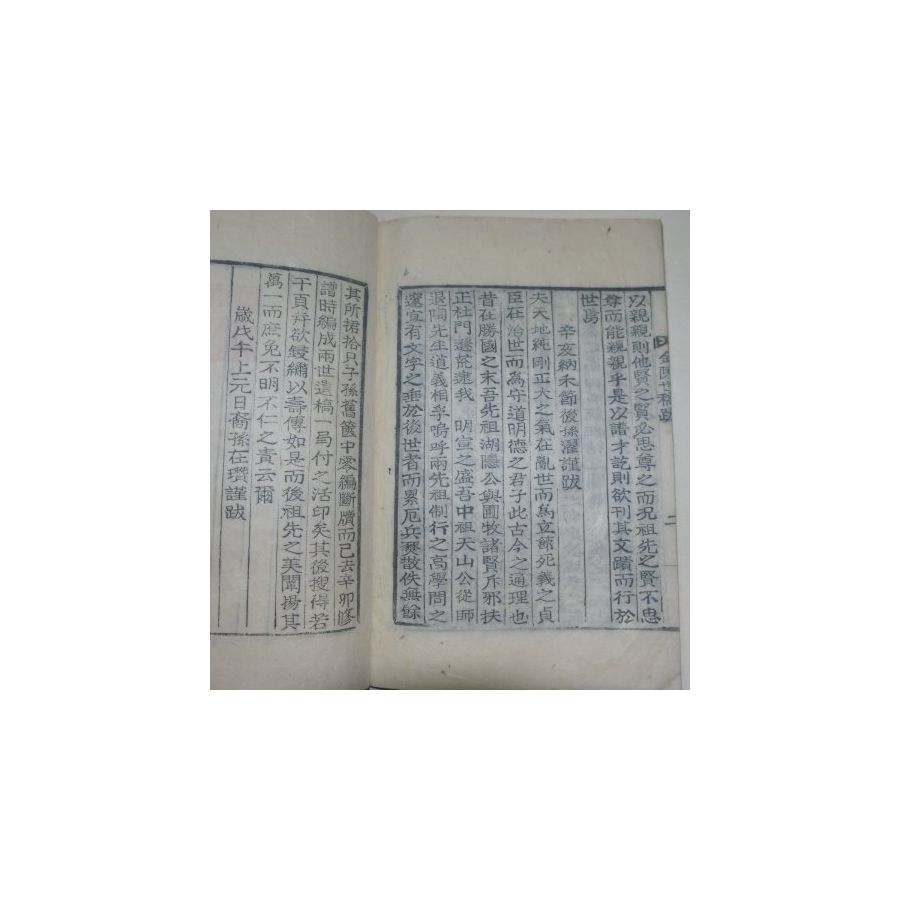 世稿跋
二
以親親則他賢之賢必思尊之而况祖先之賢不思
尊而能親親乎是以譜才訖則欲刊其文蹟而行於
世焉
辛亥納禾節後孫濯謹跋
夫天地純剛正大之氣在亂世而爲立節死義之貞
臣在治世而爲守道明德之君子此古今之通理也
昔在勝國之末吾先祖湖隱公與圃牧諸賢斥邪扶
正杜門遯荒逮我 明宣之盛吾中祖天山公從師
退陶先生道義相孚嗚呼兩先祖制行之高學問之
邃宜有文字之垂於後世者而累厄兵燹散佚無餘
其所捃拾只子孫舊篋中零編斷牘而已去辛卯修
譜時編成兩世遺稿一局付之活印矣其後搜得若
干頁幷欲鋟繡以壽傳如是而後祖先之美闡揚其
萬一而庶免不明不仁之責云爾
歲戊午上元日裔孫在瓚謹跋